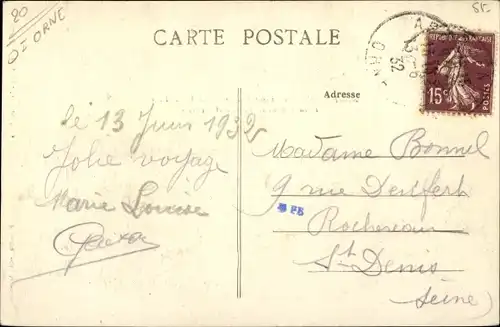 20
OI ORNE
CARTE POSTALE
Adresse
REPUBLIQUE FRANÇAISE
15c
POSTES
32
le 13 Juin 1932
Jolie voyage
Marie Louise
Madame Bonnel
9 rue Denfert
Rochereau
St Denis
(Seine)